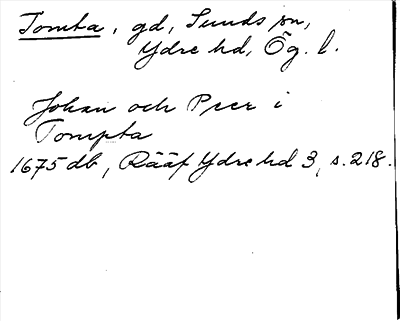 Tomta, gd, Sunds sn,
Ydre hd, Ög. l.
Johan och Peer i
Tompta
1675 db, Rääf Ydre hd 3, s. 218.